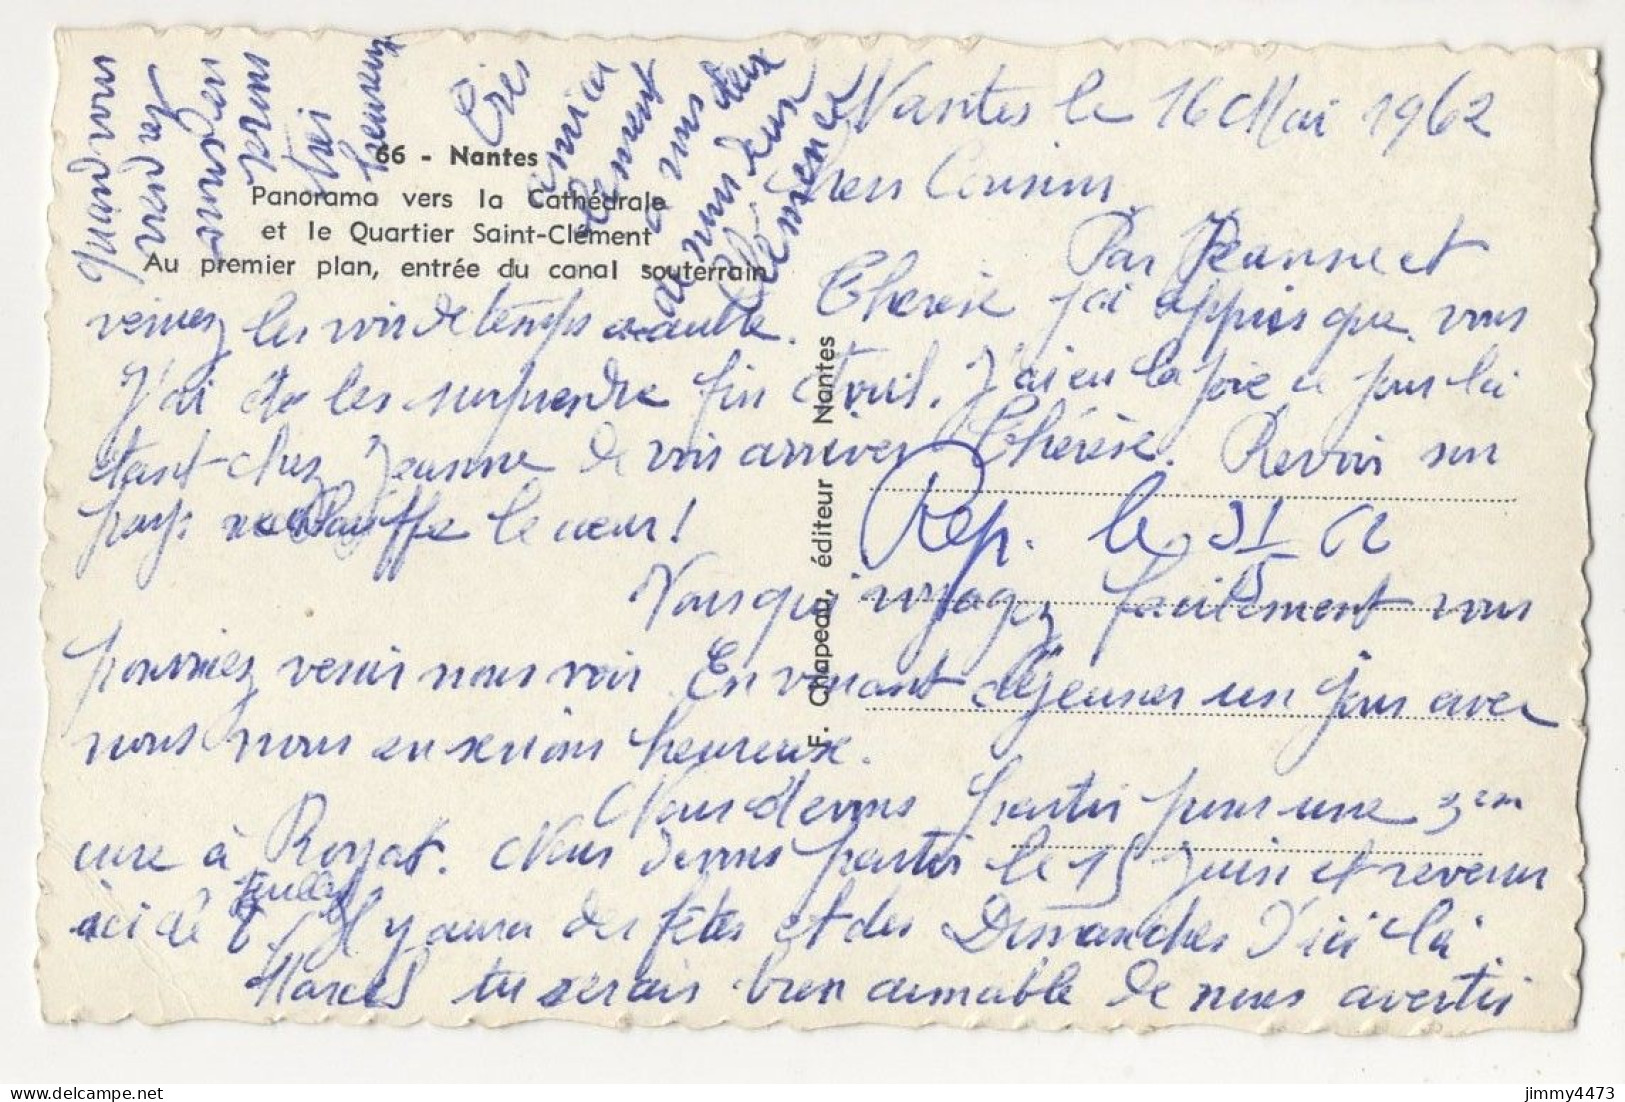 Nantes le 16 Mai 1962
Chers Cousins,
Par Jeanne et
Thérèse j'ai appris que vous
veniez les voir de temps à autre.
J'ai été les surprendre fin Avril. J'ai eu la joie ce jour là
étant chez Jeanne de voir arriver Thérèse. Revoir son
pays réchauffe le cœur!
Vous qui voyagez facilement vous
pourriez venir nous voir. En venant déjeuner un jour avec
nous nous en serions heureux.
Nous devons partir pour une 3em
cure à Royat. Nous devons partir le 15 juin et revenir
ici le 7 juillet. Il y aura des fêtes et des Dimanches d'ici là
Marcel tu serais bien aimable de nous avertir
quand vous
viendrez
nous
serons
très
heureux
Très
amica
lement
à vous deux
de nous deux
Clémence
Rep. le 31/5 62
66 - Nantes
Panorama vers la Cathédrale
et le Quartier Saint-Clément
Au premier plan, entrée du canal souterrain
F. Chapeau, éditeur Nantes
jimmy4473